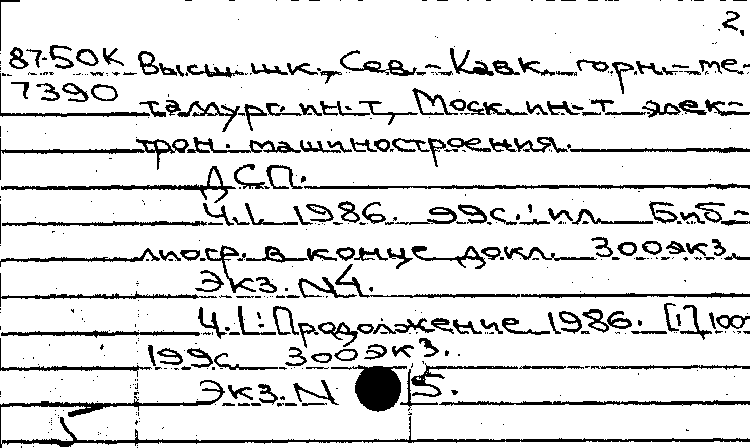 2.
87-50К Высш. шк., Сев.-Кавк. горн.-ме-
7390 таллург. ин-т, Моск. ин-т элек-
трон. машиностроения.
ДСП.
Ч.I. 1986. 99с.: ил. Биб-
лиогр. в конце докл. 300экз.
Экз. N4.
Ч.I: Продолжение. 1986. [1], 100-
199с. 300экз.
Экз. N 5.